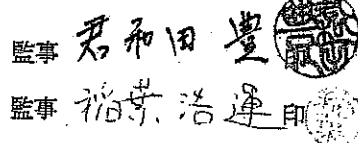 監事 君和田 豊
監事 稲葉 浩運 印